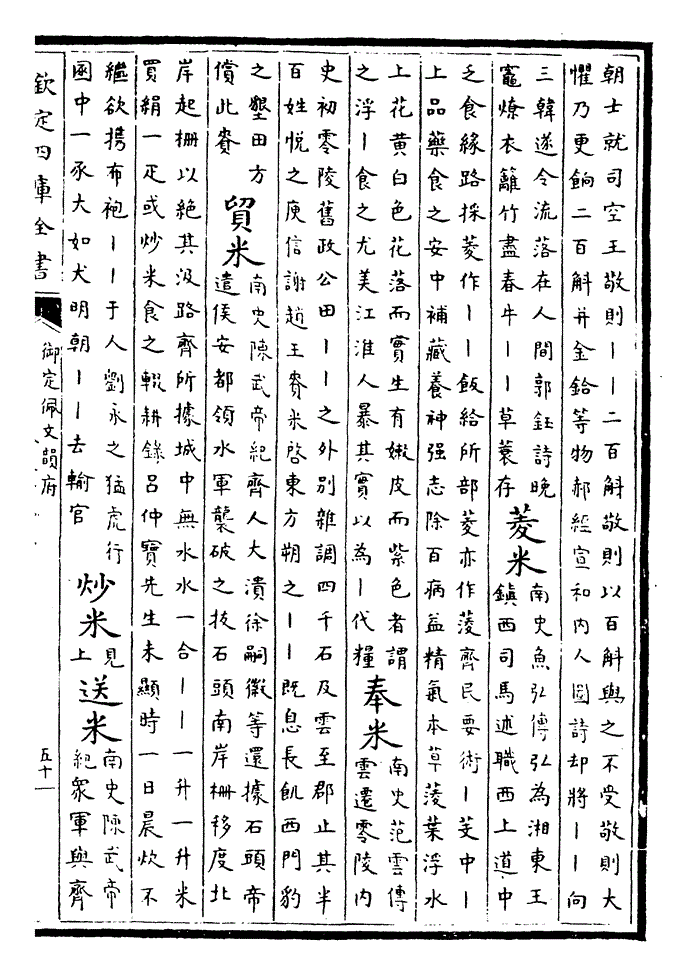 朝士就司空王敬則丨丨二百斛敬則以百斛與之不受敬則大
懼乃更餉二百斛并金鉿等物郝經宣和内人圖詩却將丨丨向
三韓遂令流落在人間郭鈺詩晚
竈燎衣籬竹盡舂牛丨丨草蓑存
菱米
南史魚弘傳弘為湘東王
鎮西司馬述職西上道中
乏食緣路採菱作丨丨飯給所部菱亦作蔆齊民要術丨芰中丨
上品藥食之安中補藏養神强志除百病益精氣本草蔆葉浮水
上花黄白色花落而實生有嫩皮而紫色者謂
之浮丨食之尤美江淮人暴其實以為丨代糧
奉米
南史范雲傳
雲遷零陵内
史初零陵舊政公田丨丨之外别雜調四千石及雲至郡止其半
百姓悦之庾信謝趙王賚米啓東方朔之丨丨既息長飢西門豹
之墾田方
償此賚
貿米
南史陳武帝紀齊人大潰徐嗣徽等還據石頭帝
遣侯安都領水軍襲破之抜石頭南岸栅移度北
岸起栅以絶其汲路齊所據城中無水水一合丨丨一升一升米
買絹一疋或炒米食之輟耕錄吕仲寶先生未顯時一日晨炊不
繼欲携布袍丨丨于人劉永之猛虎行
圈中一豕大如犬明朝丨丨去輸官
炒米
見
上
送米
南史陳武帝
紀衆軍與齊
欽定四庫全書
御定佩文韻府
五十一